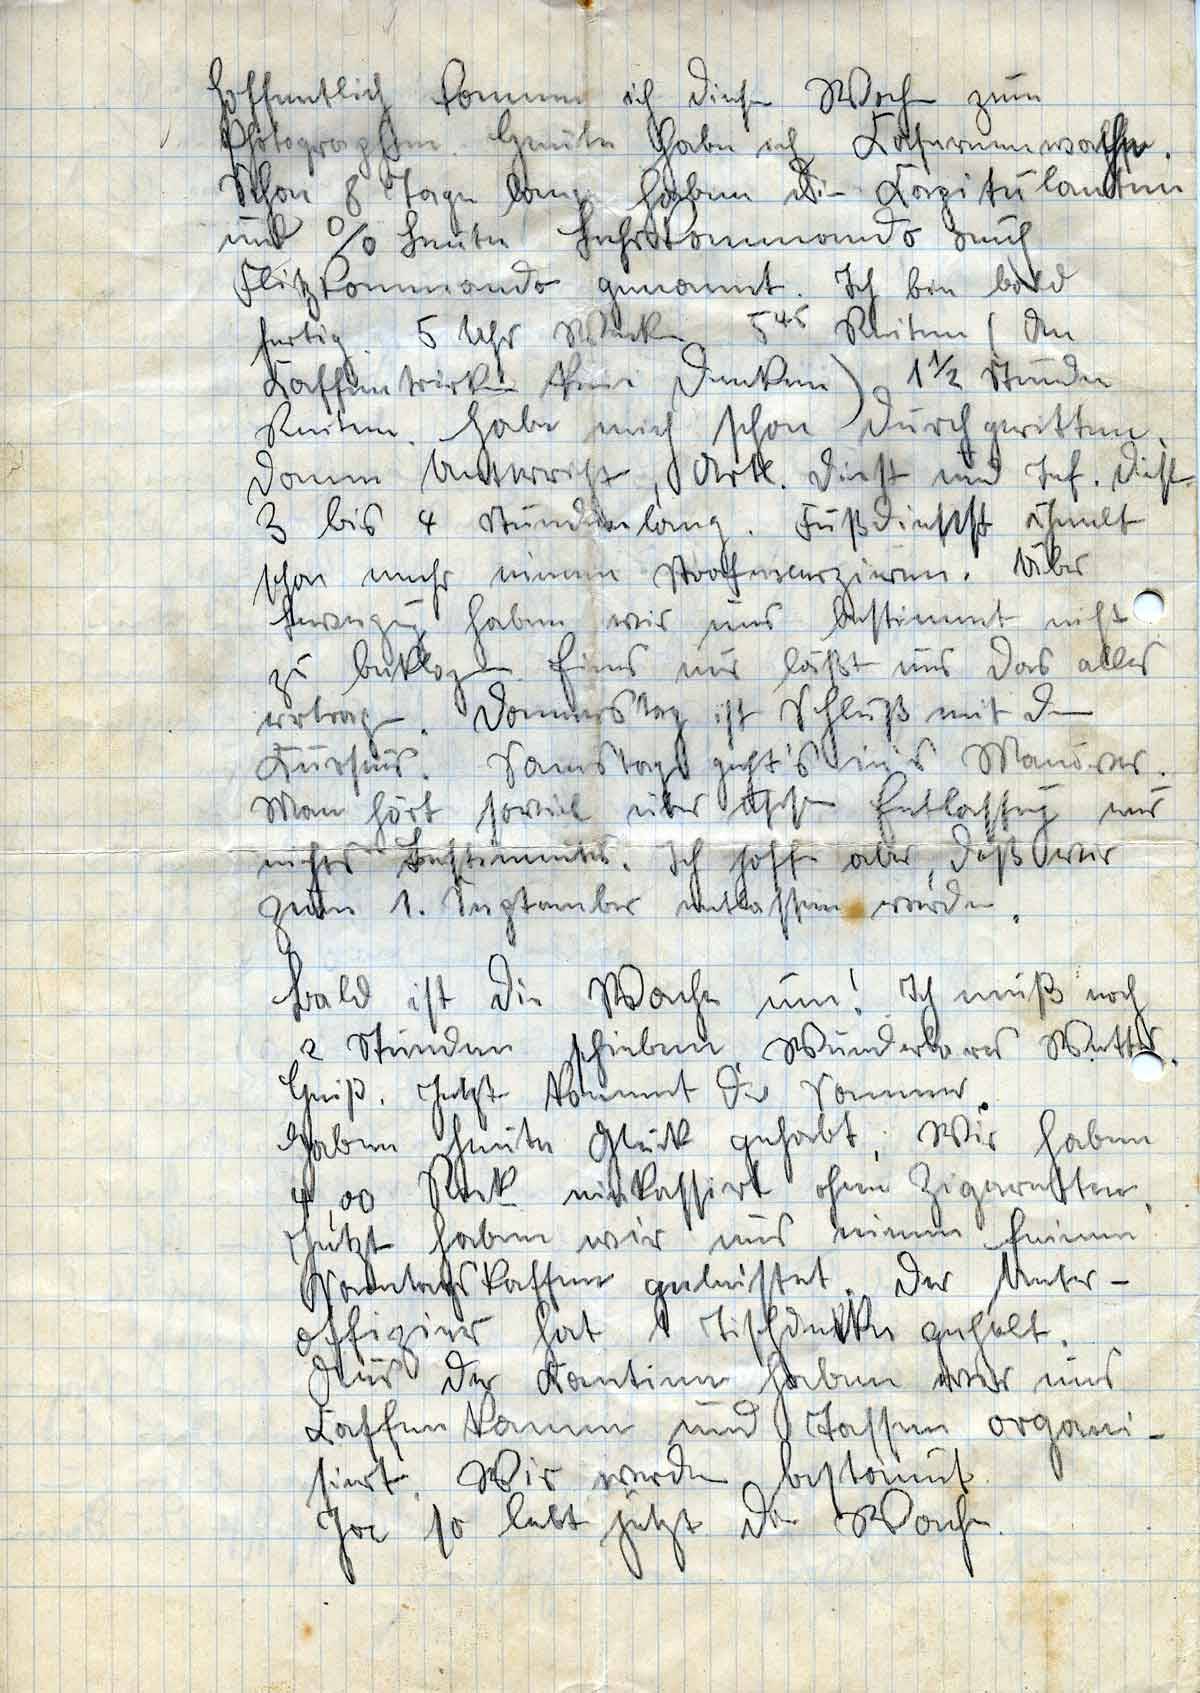 Hoffentlich komme ich diese Woche zum
Photographen. Heute habe ich Kasernenwache.
Schon 8 Tage lang haben die Kapitulanten
und % Leute Lehrkommando auch
Flitzkommando genannt. Ich bin bald
fertig. 5 Uhr Wecken 5⁴⁵ Reiten (An
Kaffeetrinken kein Denken) 1½ Stunden
Reiten. Habe mich schon durchgeritten.
Dann Unterricht, Artl. Dienst und Inf. Dienst
3 bis 4 Stunden lang. Fußdienst ähnelt
schon mehr einem Strafexerzieren. Über
haben wir uns bestimmt nicht
zu beklagen. Eins nur läßt uns das alles
ertragen. Donnerstag ist Schluß mit dem
Kursus. Samstags geht's in's Manöver.
Man hört soviel über Entlassung nur
nichts Bestimmtes. Ich hoffe aber, daß wir
zum 1. September entlassen werden.
Bald ist die Wache um! Ich muß noch
2 Stunden schieben. Wunderbares Wetter.
Heiß. Jetzt kommt der Sommer.
Haben heute Glück gehabt. Wir haben
4,00 Rmk einkassiert ohne Zigaretten.
Jetzt haben wir uns einen feinen
Sonntagskaffee geleistet. Der Unter-
offizier hat 1 Tischdecke geholt.
Aus der Kantine haben wir uns
Kaffeekanne und Tassen organi-
siert. Wir werden bestaunt.
Ja so lebt jetzt die Wache.